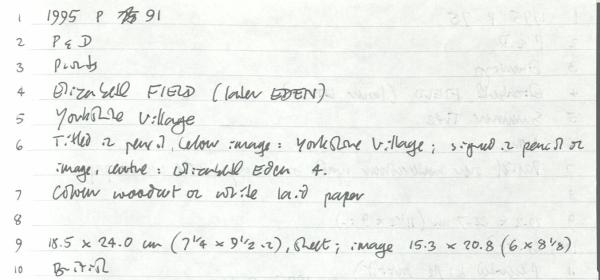 1 1995 P 91
2 P & D
3 Prints
4 Elizabeth FIELD (later EDEN)
5 Yorkshire Village
6 Titled in pencil, below image: Yorkshire Village; signed in pencil on
image, centre: Elizabeth Eden 4.
7 Colour woodcut on white laid paper
8
9 18.5 x 24.0 cm (7 1/4 x 9 1/2 in), sheet; image 15.3 x 20.8 (6 x 8 1/8)
10 British